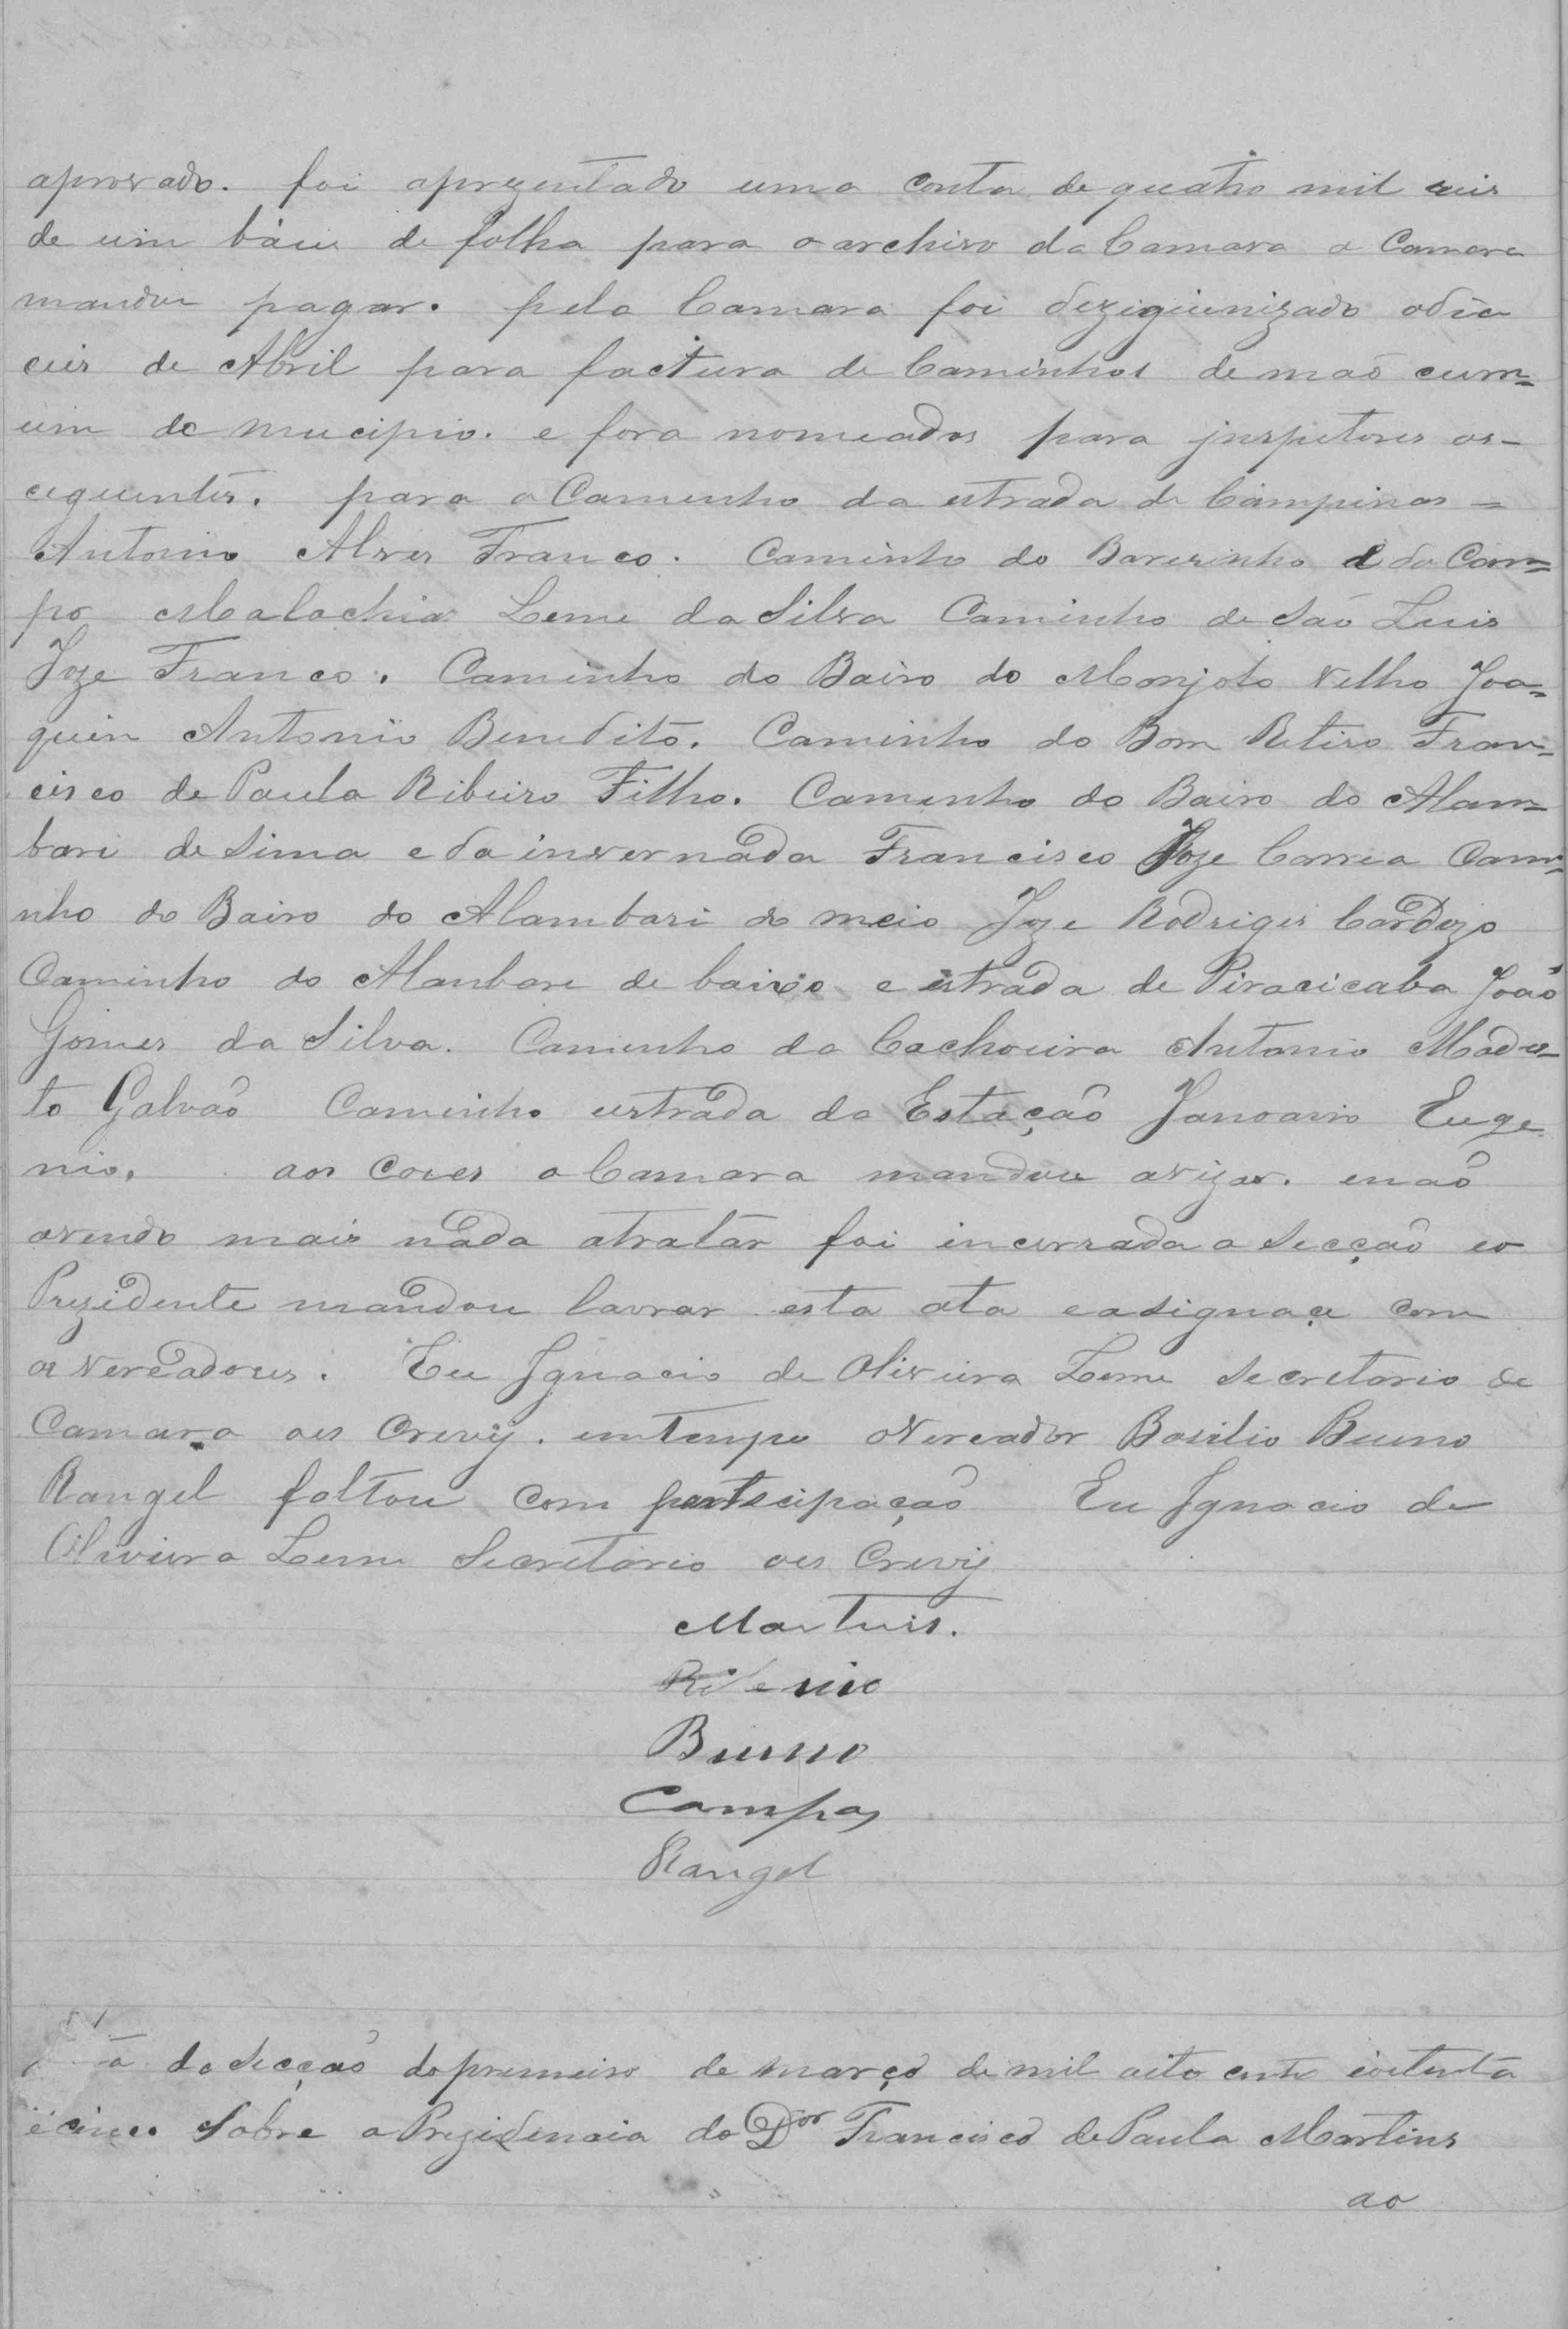 aprovado. foi aprezentado uma conta de quatro mil reis
de um báu de folha para o archivo da Camara a Camara
mandou pagar. pela Camara foi dezigiunizado odia
ceis de Abril para factura de Caminhos de maõ cum=
um do mucipio. e fora nomeados para jnspetores os-
ceguentes. para o Caminho da estrada de Campinas =
Antonio Alves Franco. Caminho do Barerinho e do Cam=
po Malachias Leme da Silva Caminho de Saõ Luis
Joze Franco. Caminho do Bairo do Monjolo Velho Joa=
quin Antonio Benedito. Caminho do Bom Retiro Fran=
cisco de Paula Ribeiro Filho. Caminho do Bairo do Alam=
bari de Sima e da invernada Francisco Joze Correa Cami=
nho do Bairo do Alambari do meio Joze Rodriges Cardozo
Caminho do Alanbare de baixo e estrada de Piracicaba Joaõ
Gomes da Silva. Caminho da Cachoeira Antonio Modes-
to Galvaõ Caminho estrada da Estaçaõ Januario Euge
nio. aos coais a Camara mandou avizar. enaõ
avendo mais nada atratar foi incerrada a Secçaõ eo
Prezidente mandou lavrar esta ata easignace com
os Vereadores. Eu Ignacio de Oliveira Leme Secretario da
Camara oes Crevy. emtempo oVereador Basilio Bueno
Rangel foltou com partecipaçaõ Eu Ignacio de
Oliveira Leme Secretario oes Crevy
Martins.
Ribeiro
Bueno
Campos
Rangel
da Secçaõ do premeiro de março de mil oito cento eoitenta
ecinco Sobre a Prezidencia do Dor Francisco de Paula Martins
ao